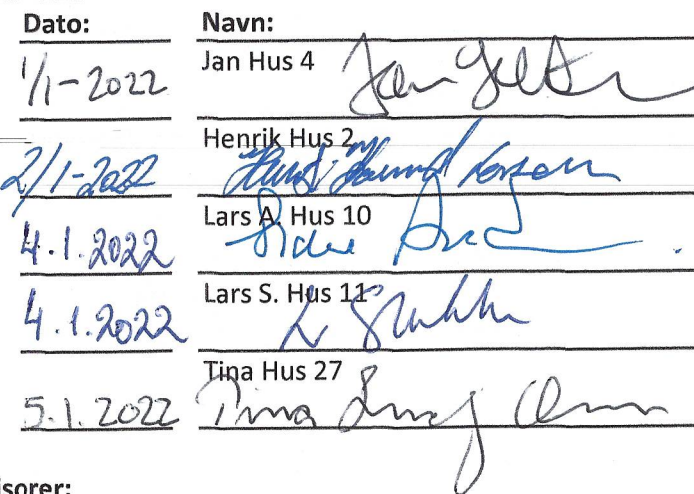 Dato: Navn:
1/1-2022 Jan Hus 4
Jan
Henrik Hus 2
2/1-2022
Lars A. Hus 10
4.1.2022
Lars S. Hus 11
4.1.2022
Tina Hus 27
5.1.2022 Tina
isorer: